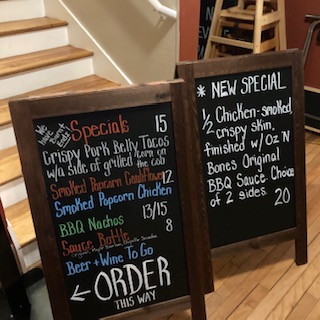 We have Burnt Ends
Specials 15
Crispy Pork Belly Tacos
w/a side of grilled corn on the cob
Smoked Popcorn Cauliflower 12
Smoked Popcorn Chicken
BBQ Nachos 13/15
Sauce Bottle 8
Beer + Wine To Go
← ORDER
THIS WAY
* NEW SPECIAL
1/2 Chicken-smoked,
crispy skin,
finished w/ Oz N
Bones Original
BBQ Sauce Choice
of 2 sides 20